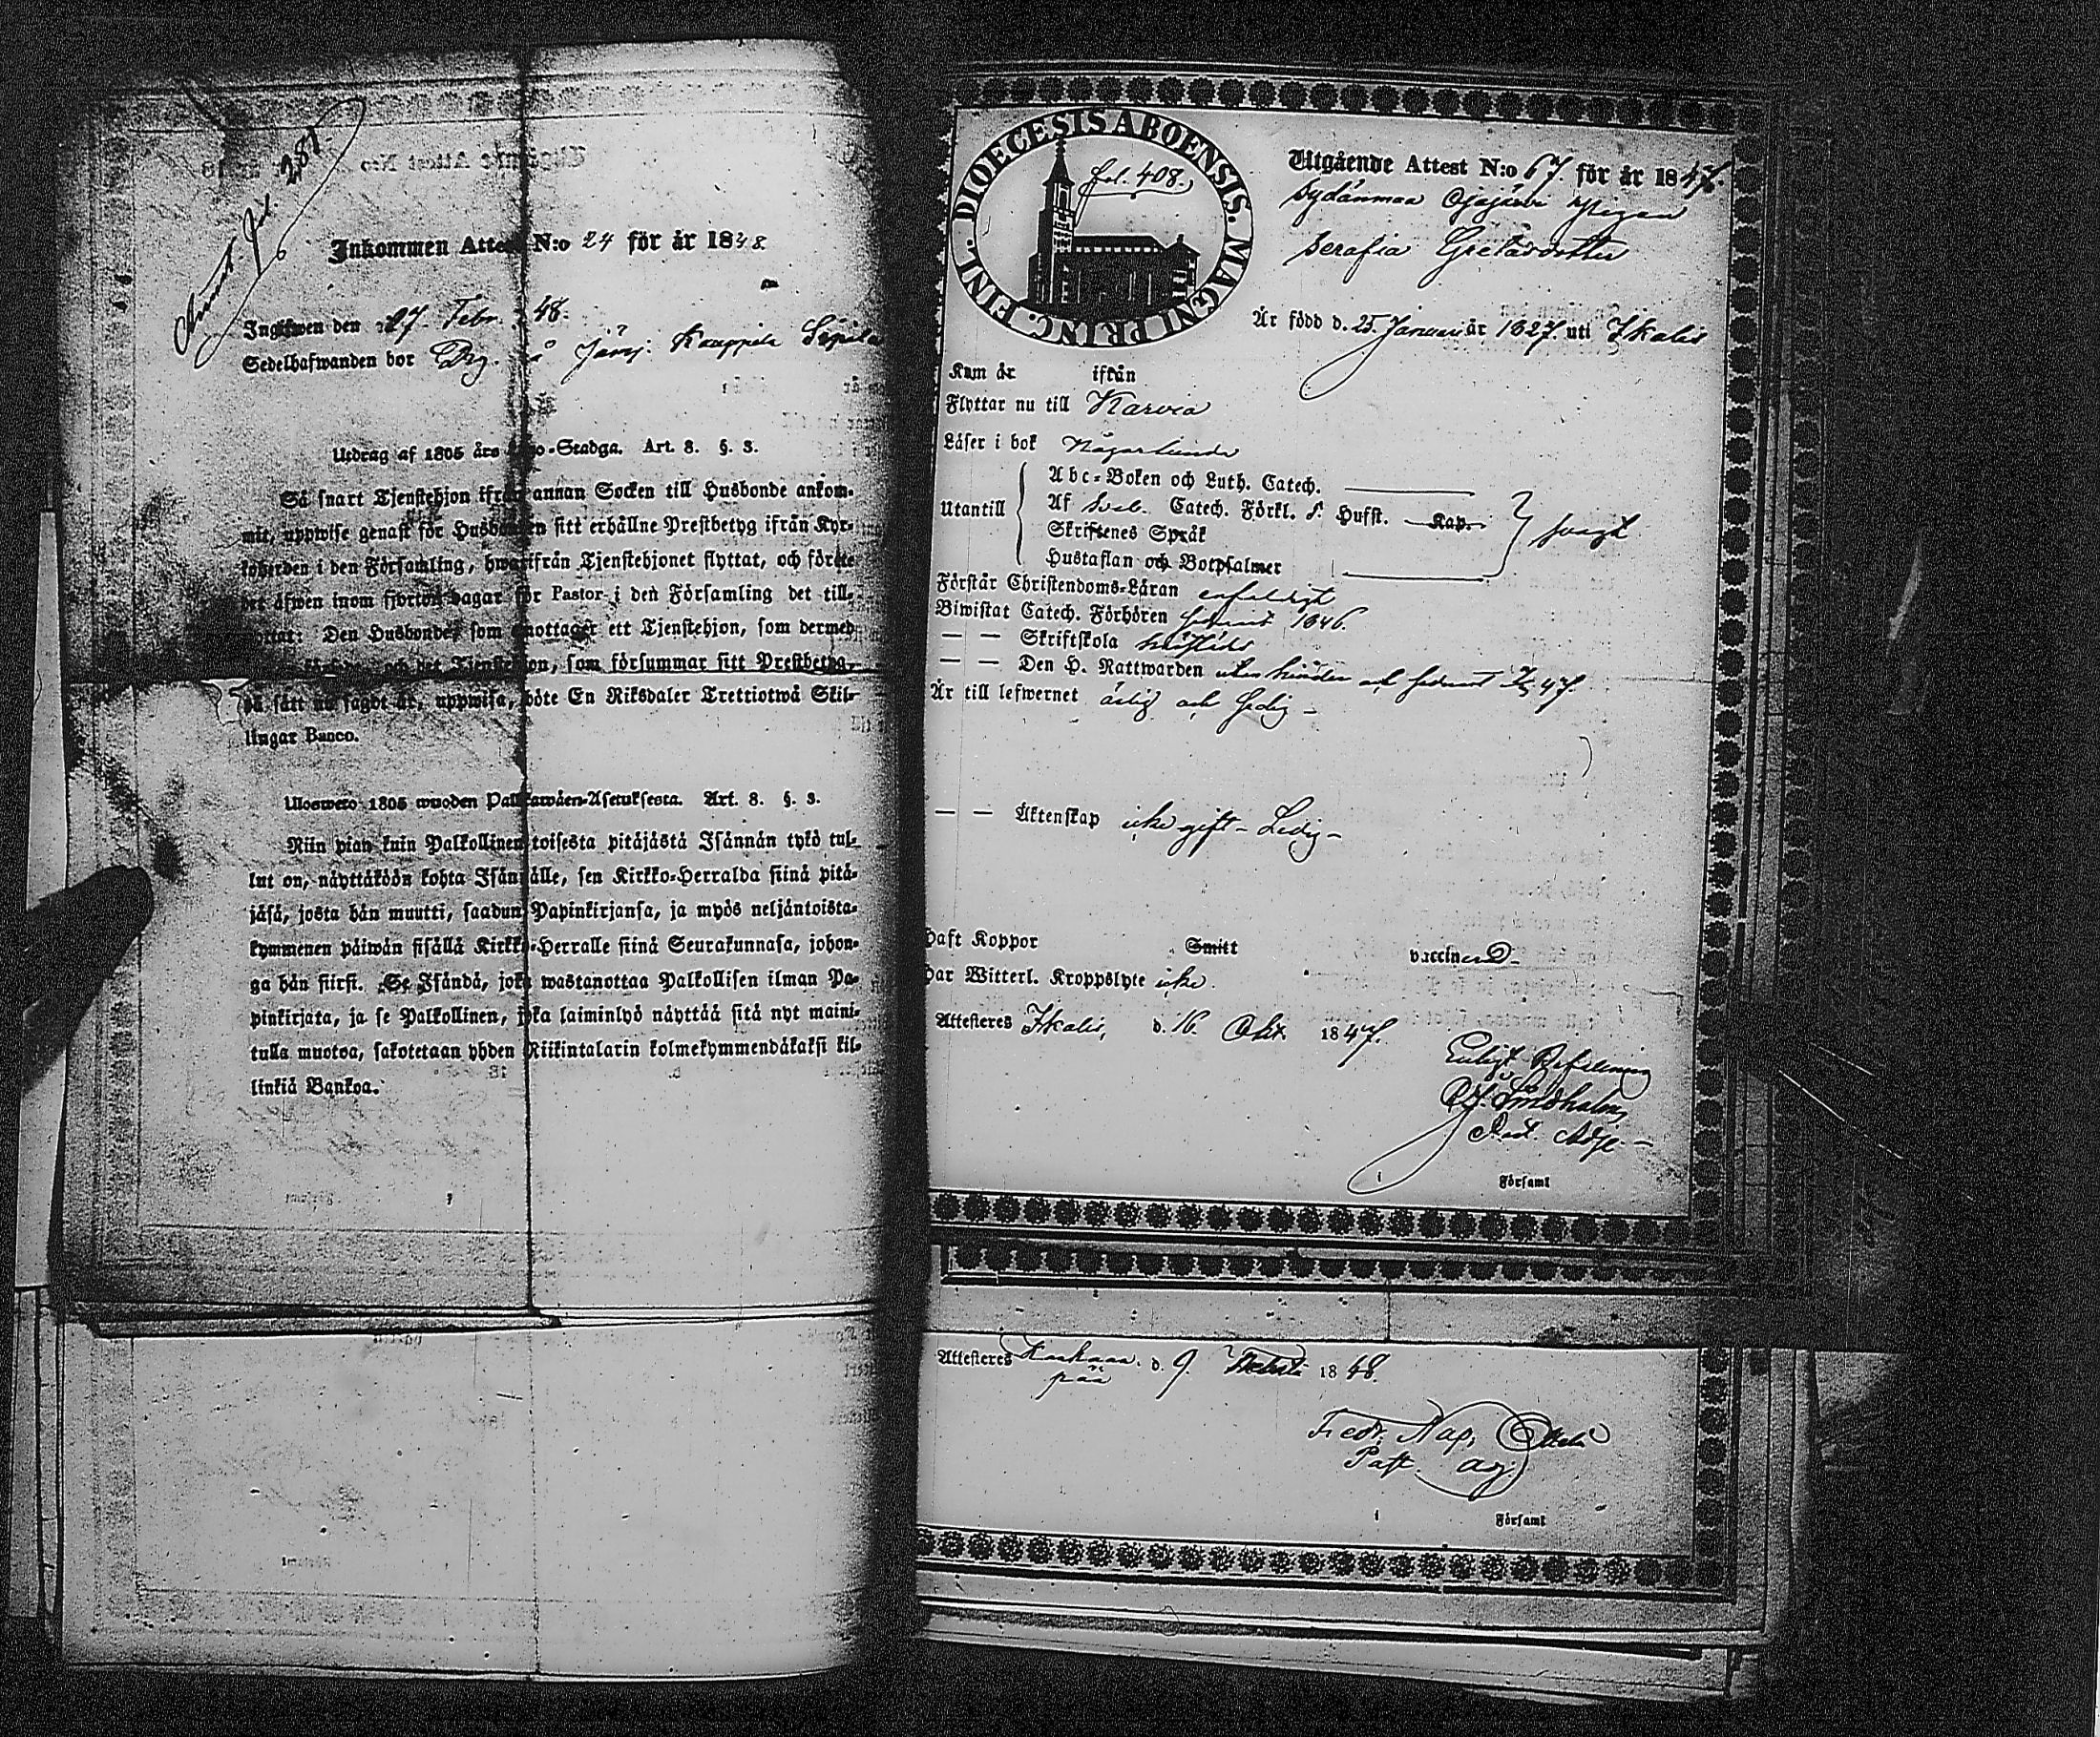 fol. 281.
Inkommen Attest N:o 24 för år 1848
Ingifwen den 27. Febr. 48.
Sedelhafwanden bor Pig. å Jämj: Kauppila
Utdrag af 1805 års Lego-Stadga. Art. 8. §. 3.
Så snart Tjenstehjon ifrån annan Socken till Husbonde ankom-
mit, uppwise genast för Husbonden sitt erhållne Prestbetyg ifrån Kyr-
koherden i den Församling, hwarifrån Tjenstehjonet flyttat, och förete
det äfwen inom fjorton dagar för Pastor i den Församling det till-
flyttat: Den Husbonde, som emottager ett Tjenstehjon, som dermed
och det Tjenstehjon, som försummar sitt Prestbetyg,
på sätt nu sagdt är, uppwisa, böte En Riksdaler Trettiotwå Skil-
lingar Banco.
Ulosweto 1805 wuoden Palkawäen-Asetuksesta. Art. 8. §. 3.
Niin pian kuin Palkollinen toisesta pitäjästä Isännän tykö tul-
lut on, näyttäköön kohta Isännälle, sen Kirkko-Herralda siinä pitä-
jäsä, josta hän muutti, saadun Papinkirjansa, ja myös neljäntoista-
kymmenen päiwän sisällä Kirkko-Herralle siinä Seurakunnasa, johon-
ga hän siirsi. Se Isändä, joka wastanottaa Palkollisen ilman Pa-
pinkirjata, ja se Palkollinen, joka laiminlyö näyttää sitä nyt maini-
tulla muotoa, sakotetaan yhden Riikintalarin kolmekymmendäkaksi kil-
linkiä Bankoa.
DIOECESIS ABOENSIS. MAGNI PRINC. FINL.
fol. 408.
Utgående Attest N:o 67. för år 1847.
Sydänmaa Ojajärvi Pigan
Serafia Gretasdotter
Är född d. 25. Januari år 1827. uti Ikalis
Kom år ifrån
Flyttar nu till Karvia
Läser i bok någorlunda
Utantill
Abc-Boken och Luth. Catech.
Af Sveb. Catech. Förkl. Husst. Kap.
Skriftenes Språk
Hustaflan och Botpsalmer
swagt
Förstår Christendoms-Läran enfaldigt
Biwistat Catech. Förhören sednast 1846.
— — Skriftskola
— — Den H. Nattwarden utan hinder och sednast 47.
Är till lefwernet ärlig och sedig –
— — Äktenskap icke gift – Ledig –
Haft Koppor Smitt vaccinerad –
Har Witterl. Kroppslyte icke.
Attesteres Ikalis, d. 16. Okt. 1847.
Enligt Befallning
Lindholm,
Past. Adj. –
i Församl
Attesteres Kankaan- d. 9. 1848.
pää
Fredr. Nap.
Past. adj.
i Församl